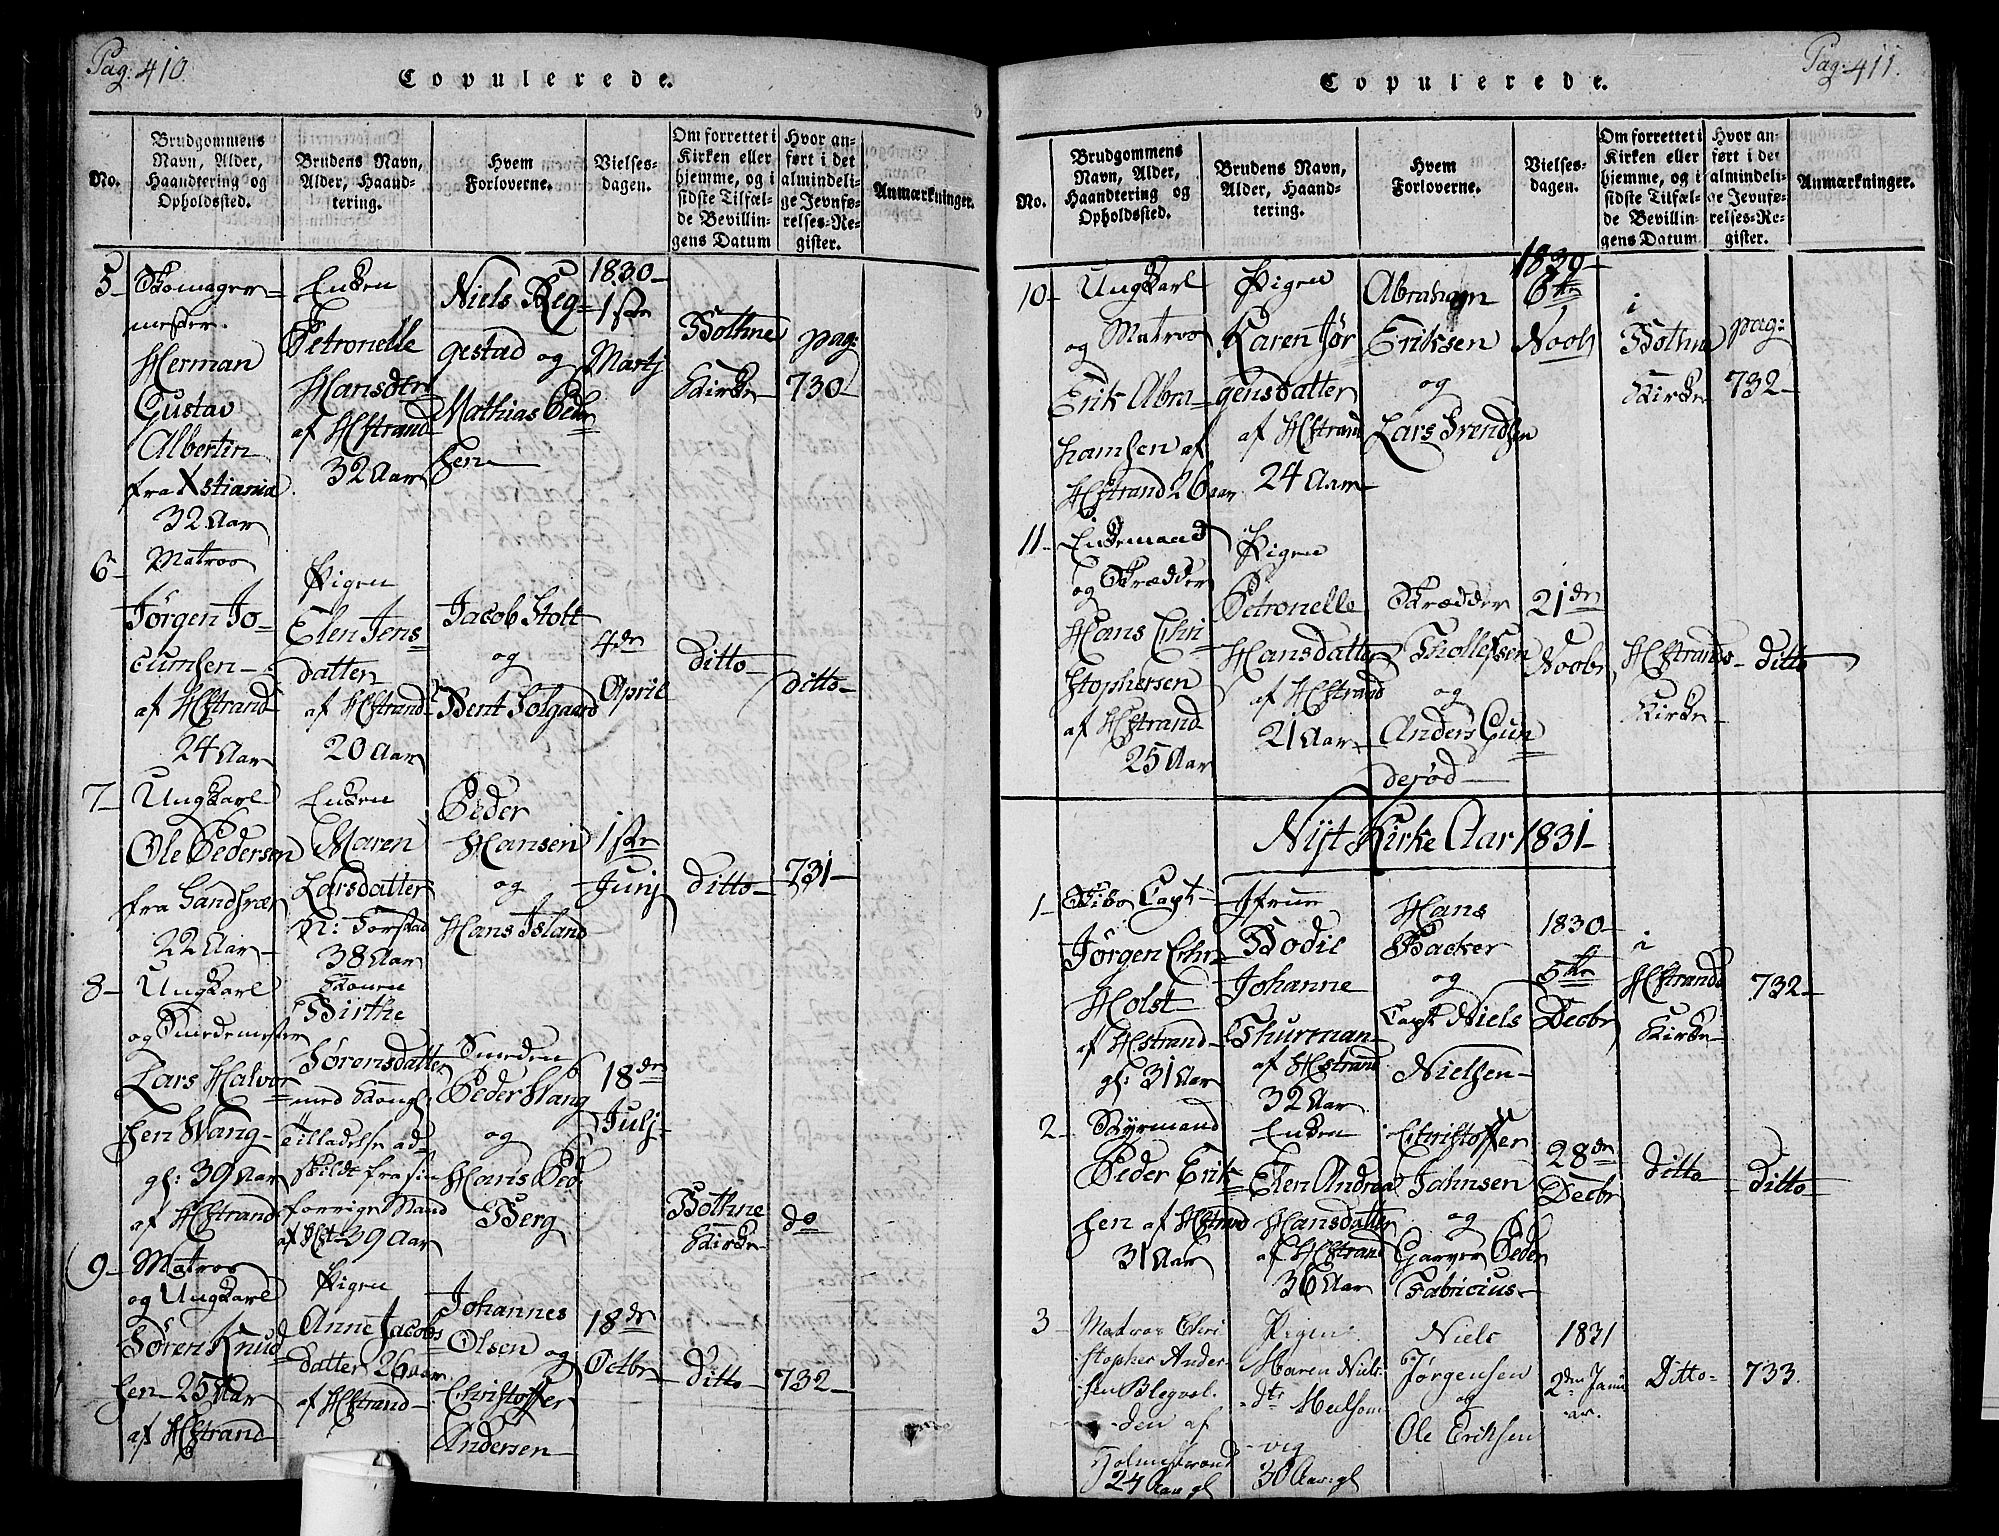 Pag. 410.
Copulerede.
No.
Brudgommens
Navn, Alder,
Haandtering og
Opholdssted.
Brudens Navn,
Alder, Haand-
tering.
Hvem
Forloverne.
Vielses-
dagen.
Om forrettet i
Kirken eller
hjemme, og i
sidste Tilfæl-
de Bevillin-
gens Datum
Hvor an-
ført i det
almindeli-
ge Jevnfø-
relses-Re-
gister.
Anmærkninger.
5-
Skomager-
mester.
Herman
Gustav
Albertin
fra Xstiania
32 Aar
Enken
Petronelle
Hansdtr
af HStrand
32 Aar
Niels Reg-
gestad og
Mathias Peder
sen
1830-
1ste
Martj
Bothne
Kirke
pag:
730-
6-
Matros
Jörgen Jo-
cumsen-
af HStrand
24 Aar
Pigen
Elen Jens
datter
af HStrand-
20 Aar
Jacob Stolt
og
Bent Solgaard
4de
April
ditto-
ditto-
7-
Ungkarl
Ole Pedersen
fra Sandsvær
22 Aar-
Enken
Maren
Larsdatter
Torstad
38 Aar
Peder
Hansen
og
Hans Island
1ste
Junj
ditto-
731-
8-
Ungkarl
og Smedemester
Lars Halvor
sen Wang-
gl: 39 Aar
af HStrand
Konen
Birthe
Sørensdatter
med Kongl.
Tilladelse ad-
skildt fra sin
forrige Mand
af HSt- 39 Aar
Smeden
Peder Wang
og
Hans Ped.
Berg
18de
Julj-
Bothne
Kirke
do
9-
Matros
og Ungkarl
Sören Knud
sen- 25 Aar
af HStrand
Pigen
Anne Jacobs
datter 26 aar
af HStrand-
Johannes
Olsen og
Christoffer
Andersen-
18de
Octbr
ditto-
732-
Pag. 411.
Copulerede.
No.
Brudgommens
Navn, Alder,
Haandtering og
Opholdssted.
Brudens Navn,
Alder, Haand-
tering.
Hvem
Forloverne.
Vielses-
dagen.
Om forrettet i
Kirken eller
hjemme, og i
sidste Tilfæl-
de Bevillin-
gens Datum
Hvor an-
ført i det
almindeli-
ge Jevnfø-
relses-Re-
gister.
Anmærkninger.
10-
Ungkarl
og Matros
Erik Abra-
hamsen af
HStrand 26 aar
Pigen
Karen Jør
gensdatter
af HStrand
24 Aar-
Abraham
Eriksen
og
Lars Svendsen
1830-
6te
Novbr
i
Bothne
Kirke
pag:
732-
11-
Enkemand
og Skrædder
Hans Chri
stophersen
af HStrand
25 Aar
Pigen
Petronelle
Hansdatter
af HStrand
21 Aar-
Skrædder
Thollefsen
og
Anders Gun
derød-
21de
Novbr
HStrands-
Kirke-
ditto-
Nyt Kirke Aar 1831-
1-
Skibs Capt-
Jörgen Chr-
Holst
af HStrand-
gl: 31 Aar
Jfrue
Bodil
Johanne
Thurman-
af HStrand
32 Aar
Hans
Backer
og
Capt Niels
Nielsen-
1830-
5te
Decbr
i
HStrands
Kirke-
732-
2-
Styrmand
Peder Erik
sen af HStrand
31 Aar
Enken
Elen Andrea
Hansdatter
af HStrand
36 Aar
Christoffer
Jahnsen
og
Garver Peder
Fabricius-
28de
Decbr
ditto
ditto-
3-
Matros Chri
stopher Ander
sen Blegvol
den af
Holmestrand
24 Aar gl
Pigen
Maren Niels
dtr Mulsom
vig
30 Aar gl
Niels
Jørgensen
og
Ole Eriksen
1831
2den Janu
ar.
Ditto-
733.